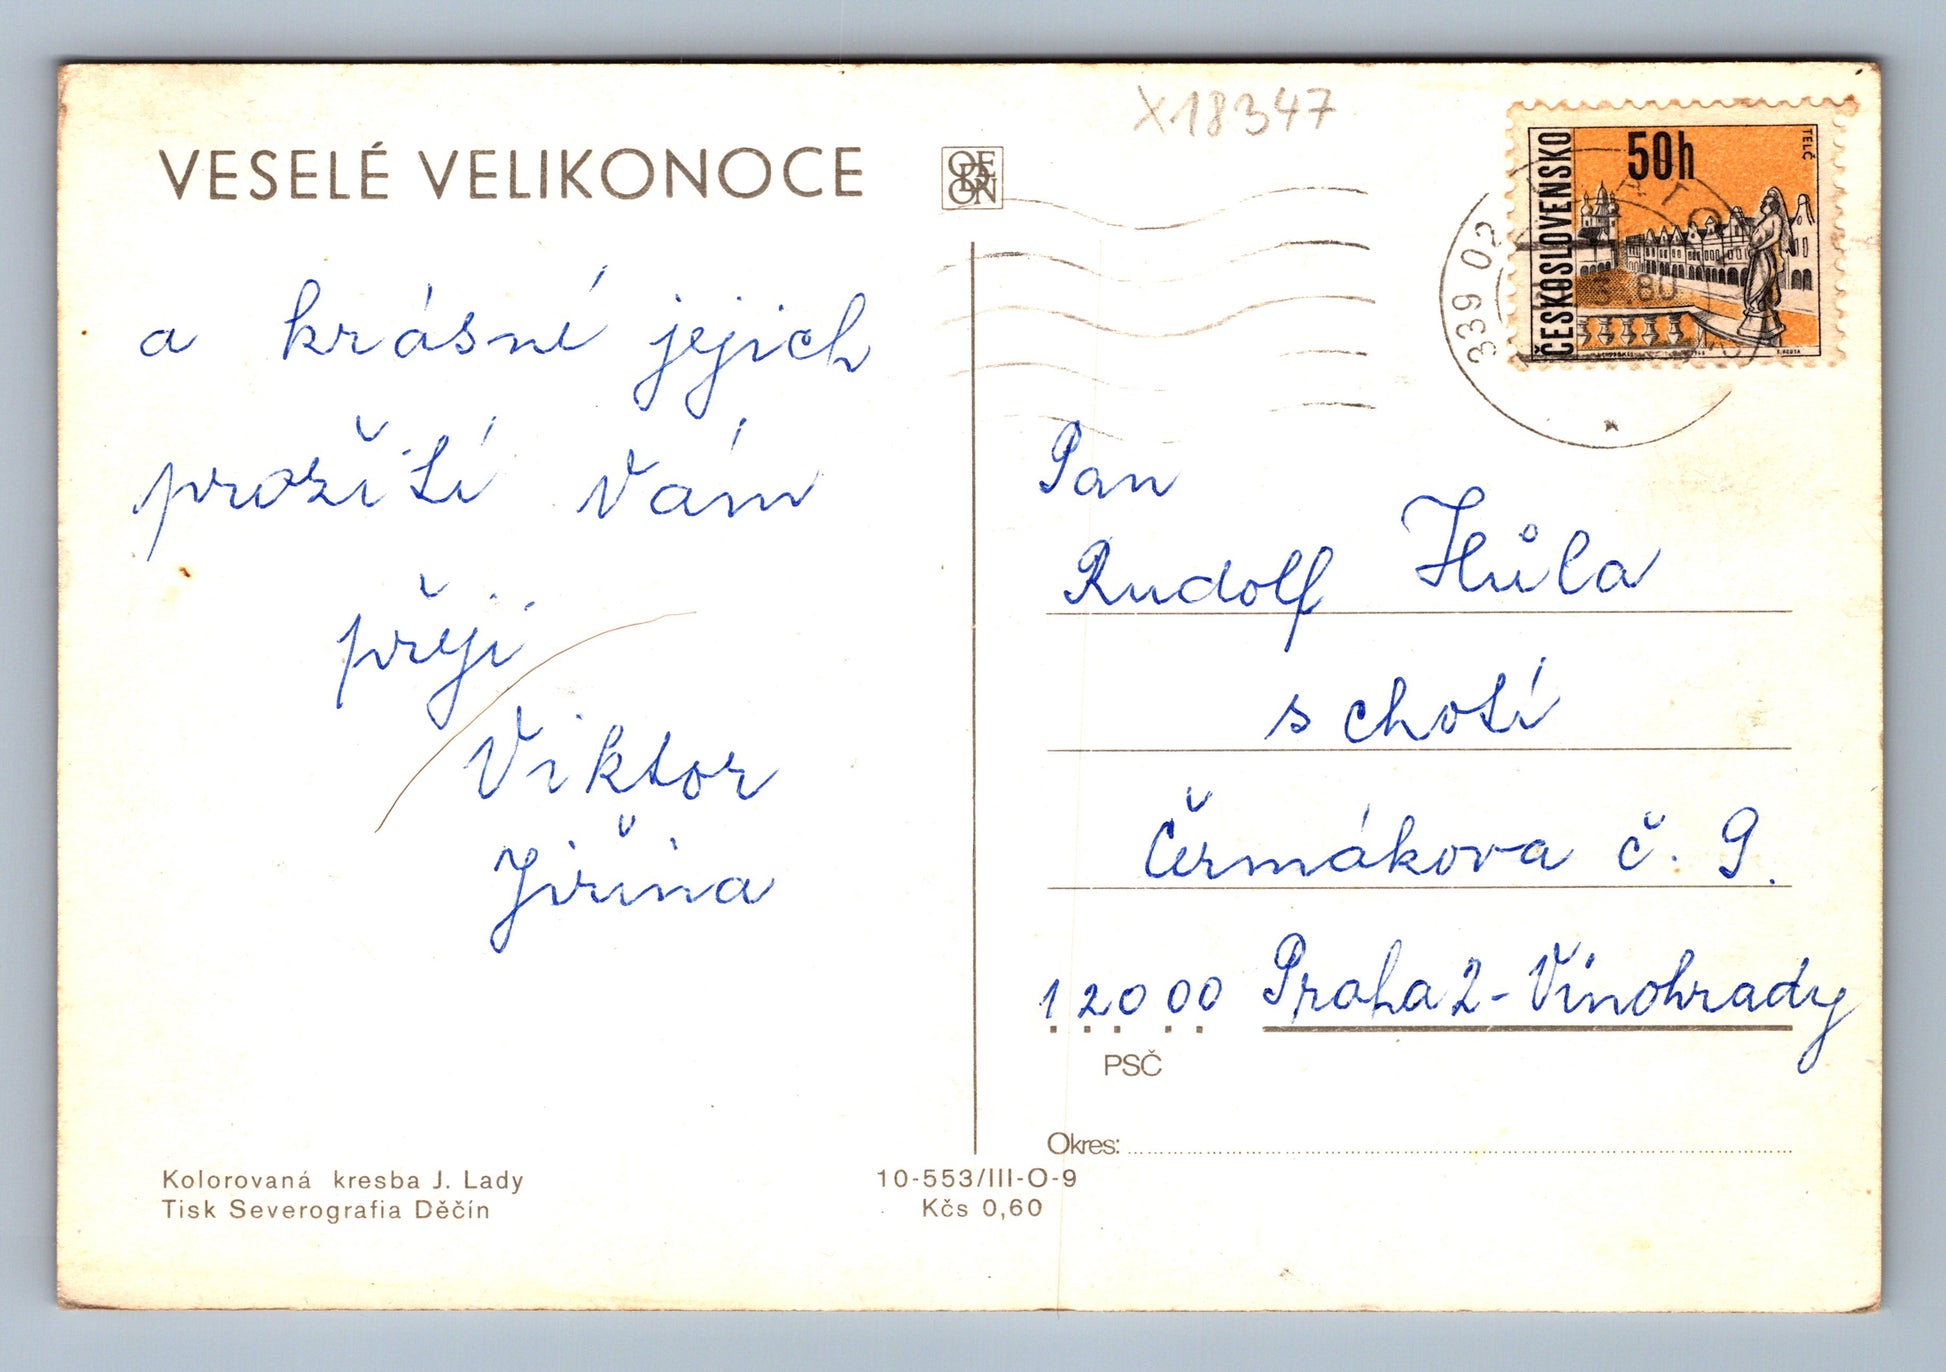 X18347
VESELÉ VELIKONOCE
ODEON
ČESKOSLOVENSKO
50h
TELČ
339 02
80
a krásné jejich
prožití Vám
přeji
Viktor
Jiřina
Pan
Rudolf Hůla
s chotí
Čermákova č. 9.
120 00 Praha 2 - Vinohrady
PSČ
Okres:
Kolorovaná kresba J. Lady
Tisk Severografia Děčín
10-553/III-O-9
Kčs 0,60